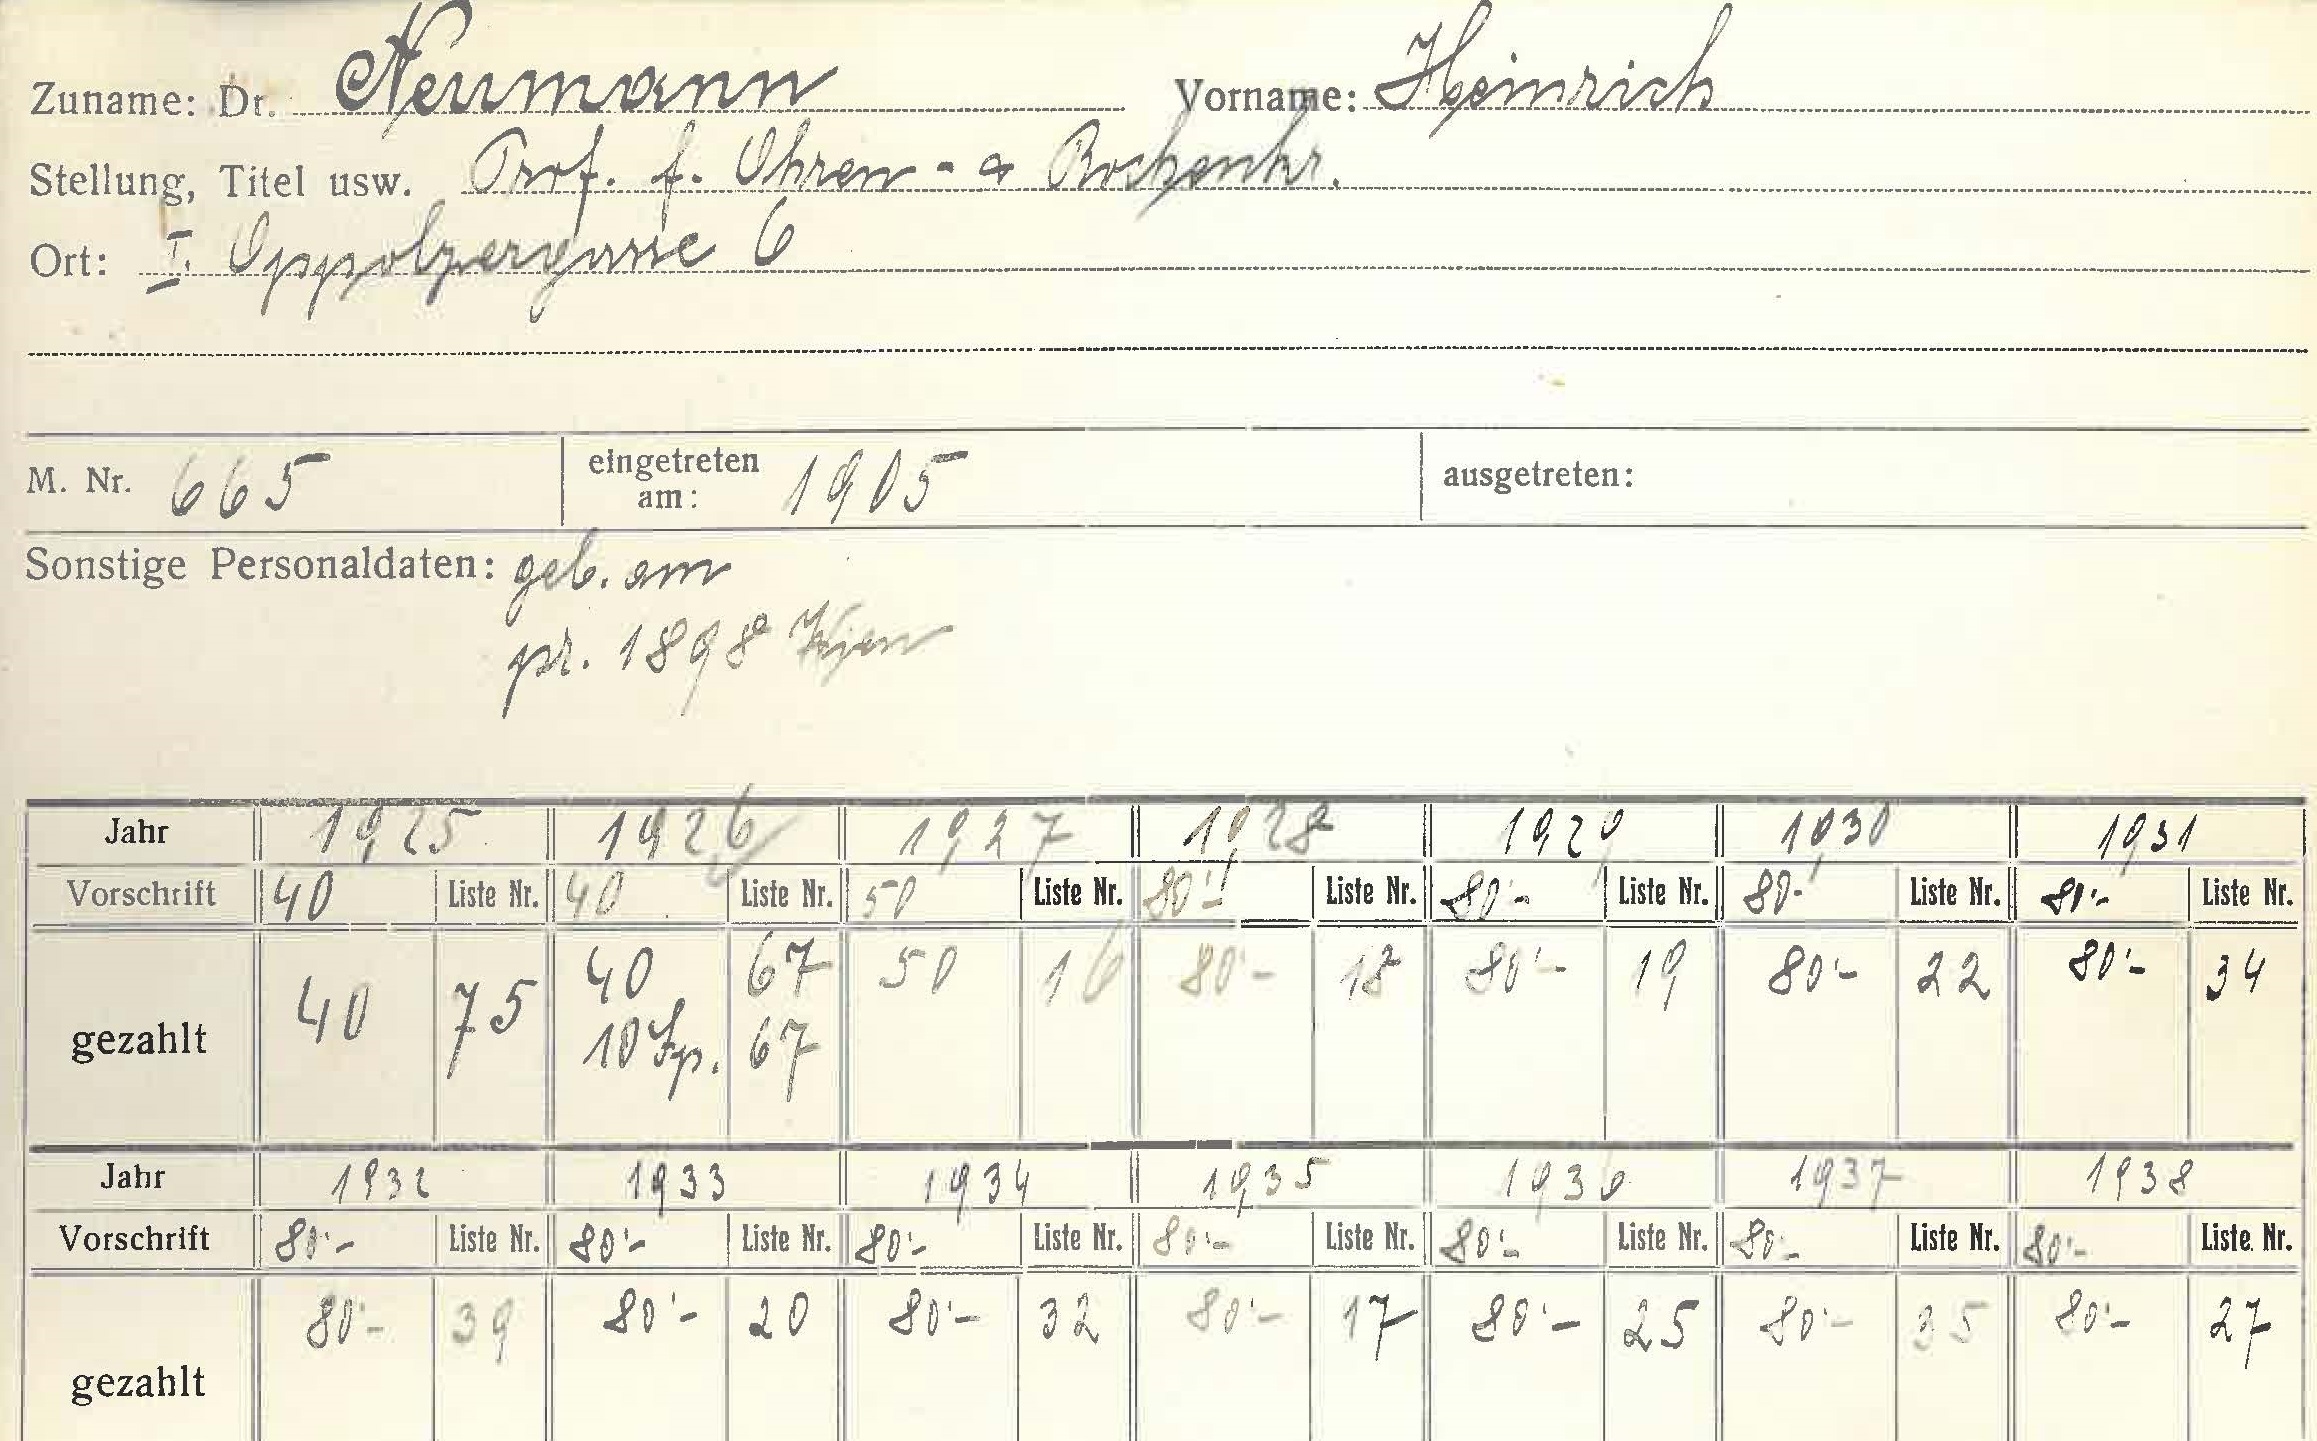 Zuname: Dr. Neumann Vorname: Heinrich
Stellung, Titel usw. Prof. f. Ohren- &
Ort: I. Oppolzergasse 6
M. Nr. 665 eingetreten am: 1905 ausgetreten:
Sonstige Personaldaten: geb. am
pr. 1898 Wien
Jahr 1925 1926 1927 1928 1929 1930 1931
Vorschrift 40 Liste Nr. 40 Liste Nr. 50 Liste Nr. 80'- Liste Nr. 80'- Liste Nr. 80'- Liste Nr. 80'- Liste Nr.
gezahlt 40 75 40 67 50 16 80'- 18 80'- 19 80'- 22 80'- 34
10 67
Jahr 1932 1933 1934 1935 1936 1937 1938
Vorschrift 80'- Liste Nr. 80'- Liste Nr. 80'- Liste Nr. 80'- Liste Nr. 80'- Liste Nr. 80'- Liste Nr. 80'- Liste Nr.
gezahlt 80'- 39 80'- 20 80'- 32 80'- 17 80'- 25 80'- 35 80'- 27